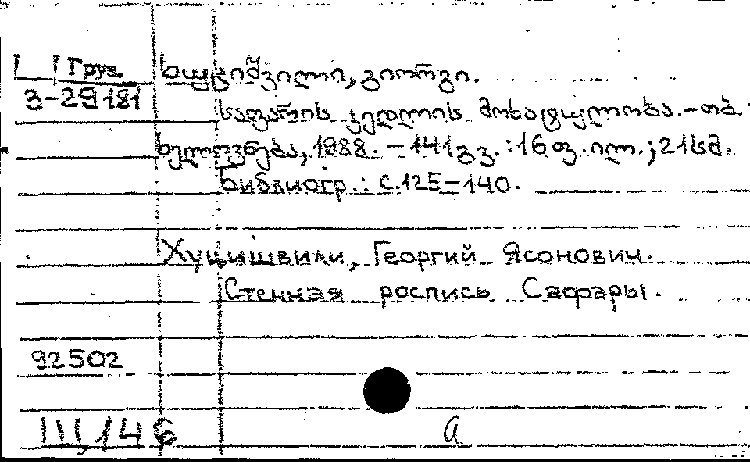 Груз. ხუციშვილი, გიორგი.
3-29181
საფარის კედლის მოხატულობა. - თბ.:
ხელოვნება, 1988. - 141გვ. : 16ფ. ილ. ; 21სმ.
Библиогр.: с.125-140.
Хуцишвили, Георгий Ясонович.
Стенная роспись Сафары.
92502
III,14б
а